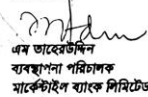 এম তাহেরউদ্দিন
ব্যবস্থাপনা পরিচালক
মার্কেন্টাইল ব্যাংক লিমিটেড